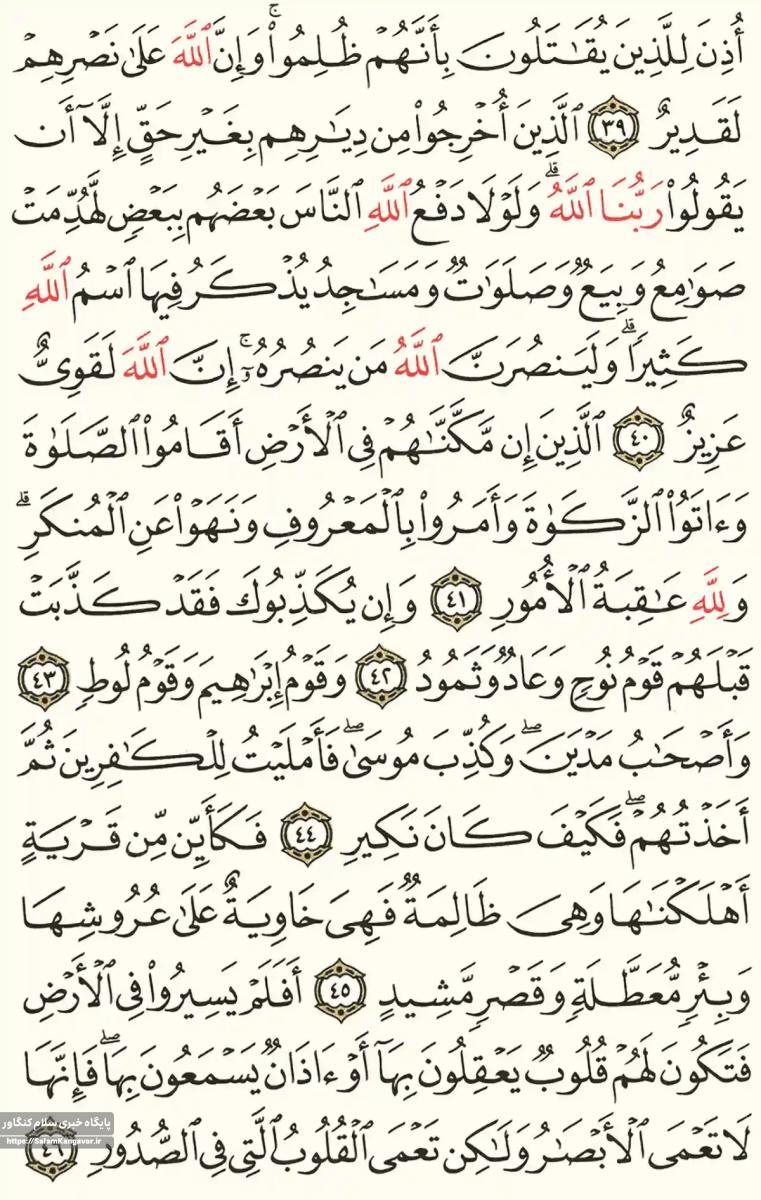 أُذِنَ لِلَّذِينَ يُقَٰتَلُونَ بِأَنَّهُمْ ظُلِمُوا۟ۚ وَإِنَّ ٱللَّهَ عَلَىٰ نَصْرِهِمْ
لَقَدِيرٌ ﴿٣٩﴾ ٱلَّذِينَ أُخْرِجُوا۟ مِن دِيَٰرِهِم بِغَيْرِ حَقٍّ إِلَّآ أَن
يَقُولُوا۟ رَبُّنَا ٱللَّهُۗ وَلَوْلَا دَفْعُ ٱللَّهِ ٱلنَّاسَ بَعْضَهُم بِبَعْضٍ لَّهُدِّمَتْ
صَوَٰمِعُ وَبِيَعٌ وَصَلَوَٰتٌ وَمَسَٰجِدُ يُذْكَرُ فِيهَا ٱسْمُ ٱللَّهِ
كَثِيرًاۗ وَلَيَنصُرَنَّ ٱللَّهُ مَن يَنصُرُهُۥٓۚ إِنَّ ٱللَّهَ لَقَوِىٌّ
عَزِيزٌ ﴿٤٠﴾ ٱلَّذِينَ إِن مَّكَّنَّٰهُمْ فِى ٱلْأَرْضِ أَقَامُوا۟ ٱلصَّلَوٰةَ
وَءَاتَوُا۟ ٱلزَّكَوٰةَ وَأَمَرُوا۟ بِٱلْمَعْرُوفِ وَنَهَوْا۟ عَنِ ٱلْمُنكَرِۗ
وَلِلَّهِ عَٰقِبَةُ ٱلْأُمُورِ ﴿٤١﴾ وَإِن يُكَذِّبُوكَ فَقَدْ كَذَّبَتْ
قَبْلَهُمْ قَوْمُ نُوحٍ وَعَادٌ وَثَمُودُ ﴿٤٢﴾ وَقَوْمُ إِبْرَٰهِيمَ وَقَوْمُ لُوطٍ ﴿٤٣﴾
وَأَصْحَٰبُ مَدْيَنَۖ وَكُذِّبَ مُوسَىٰۖ فَأَمْلَيْتُ لِلْكَٰفِرِينَ ثُمَّ
أَخَذْتُهُمْۖ فَكَيْفَ كَانَ نَكِيرِ ﴿٤٤﴾ فَكَأَيِّن مِّن قَرْيَةٍ
أَهْلَكْنَٰهَا وَهِىَ ظَالِمَةٌ فَهِىَ خَاوِيَةٌ عَلَىٰ عُرُوشِهَا
وَبِئْرٍ مُّعَطَّلَةٍ وَقَصْرٍ مَّشِيدٍ ﴿٤٥﴾ أَفَلَمْ يَسِيرُوا۟ فِى ٱلْأَرْضِ
فَتَكُونَ لَهُمْ قُلُوبٌ يَعْقِلُونَ بِهَآ أَوْ ءَاذَانٌ يَسْمَعُونَ بِهَاۖ فَإِنَّهَا
لَا تَعْمَى ٱلْأَبْصَٰرُ وَلَٰكِن تَعْمَى ٱلْقُلُوبُ ٱلَّتِى فِى ٱلصُّدُورِ ﴿٤٦﴾
پایگاه خبری سلام کنگاور
https://SalamKangavar.ir